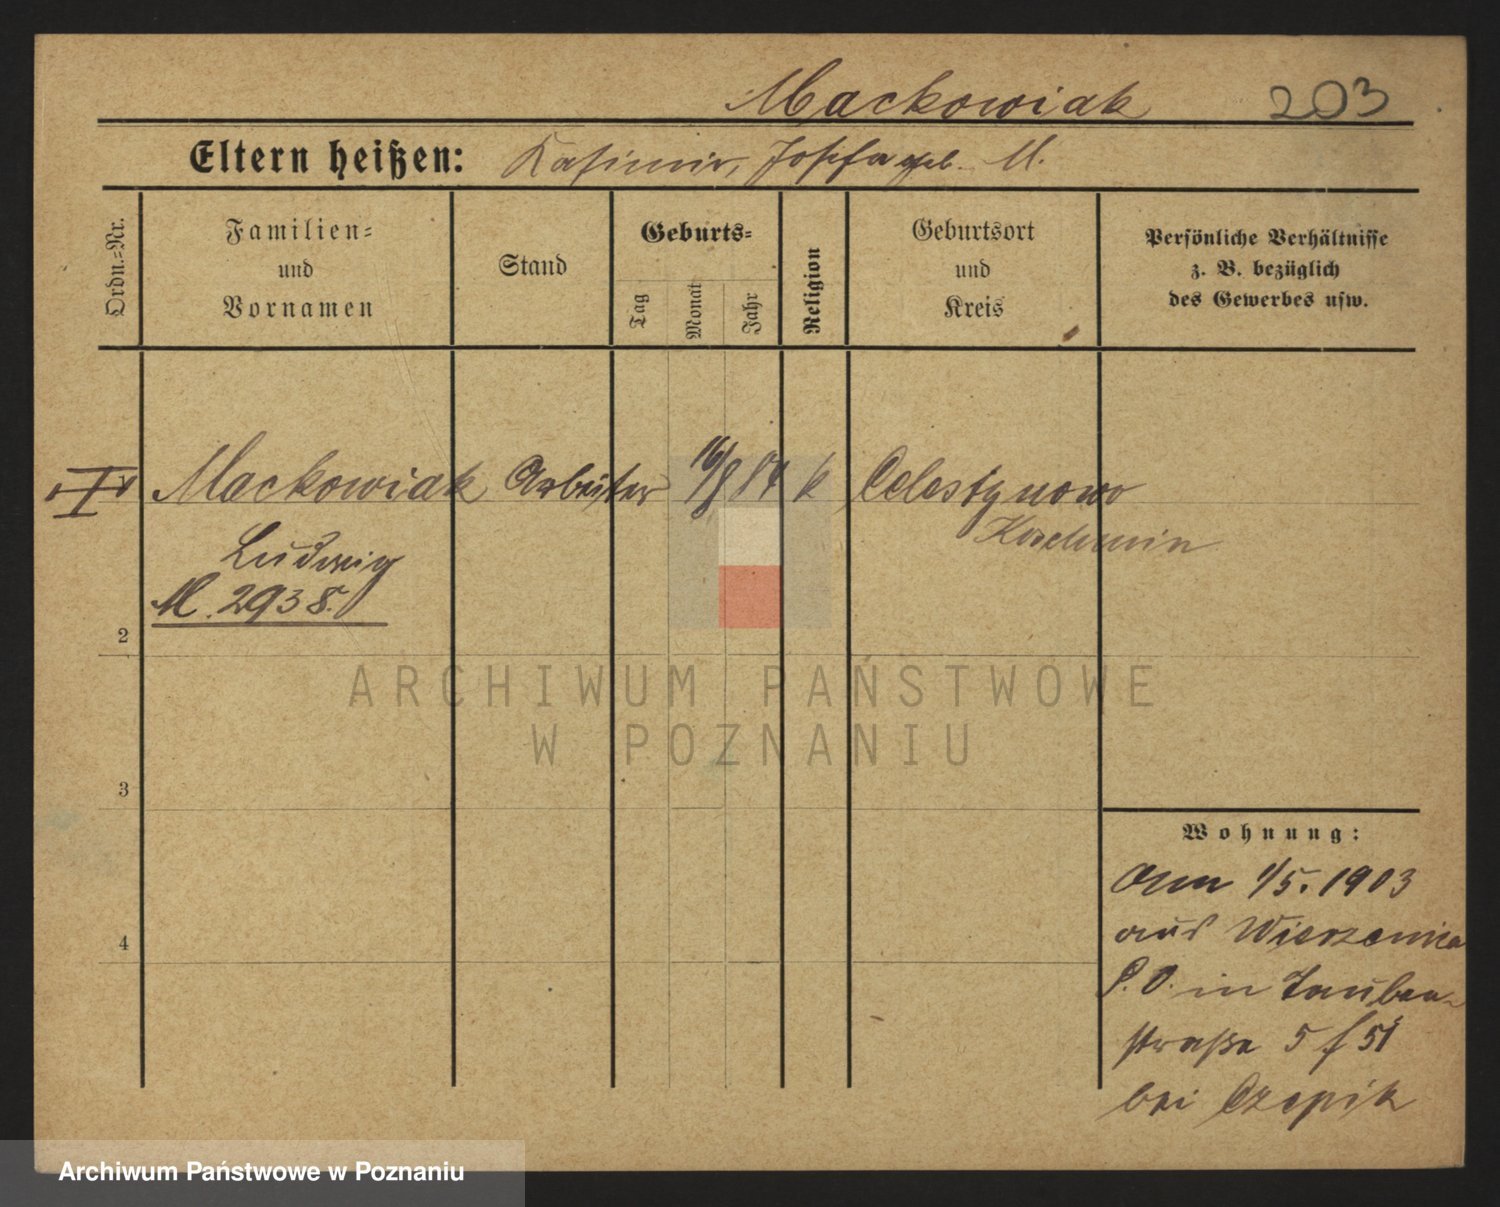 Mackowiak 203
Eltern heißen: Kasimir, Josefa geb. M.
Ordn.=Nr.
Familien=
und
Vornamen
Stand
Geburts=
Tag
Monat
Jahr
Religion
Geburtsort
und
Kreis
Persönliche Verhältnisse
z. B. bezüglich
des Gewerbes usw.
Mackowiak Arbeiter 16/8 84 k Celestynowo
Koschmin
Ludwig
M. 2938.
2
3
4
Wohnung:
1/5. 1903
aus Wierzenica
P. O. in Tauben-
straße 5 f 51
bei Czepik
ARCHIWUM PAŃSTWOWE
W POZNANIU
Archiwum Państwowe w Poznaniu